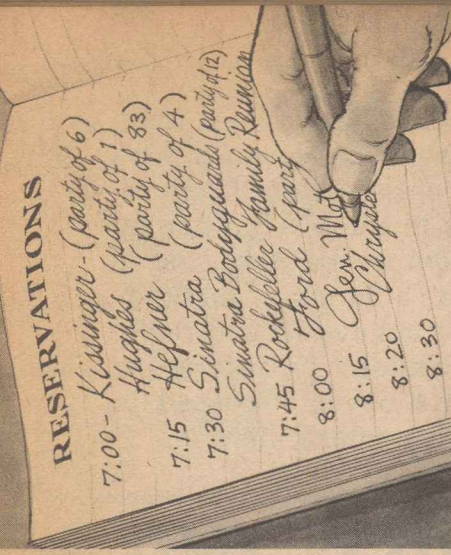 RESERVATIONS
7:00 - Kissinger - (party of 6)
Hughes (party of 1)
7:15 Hefner (party of 83)
7:30 Sinatra (party of 4)
Sinatra Bodyguards (party of 12)
7:45 Rockefeller Family Reunion
8:00 Ford (party
8:15 Gen. Mot
Chrysle
8:20
8:30